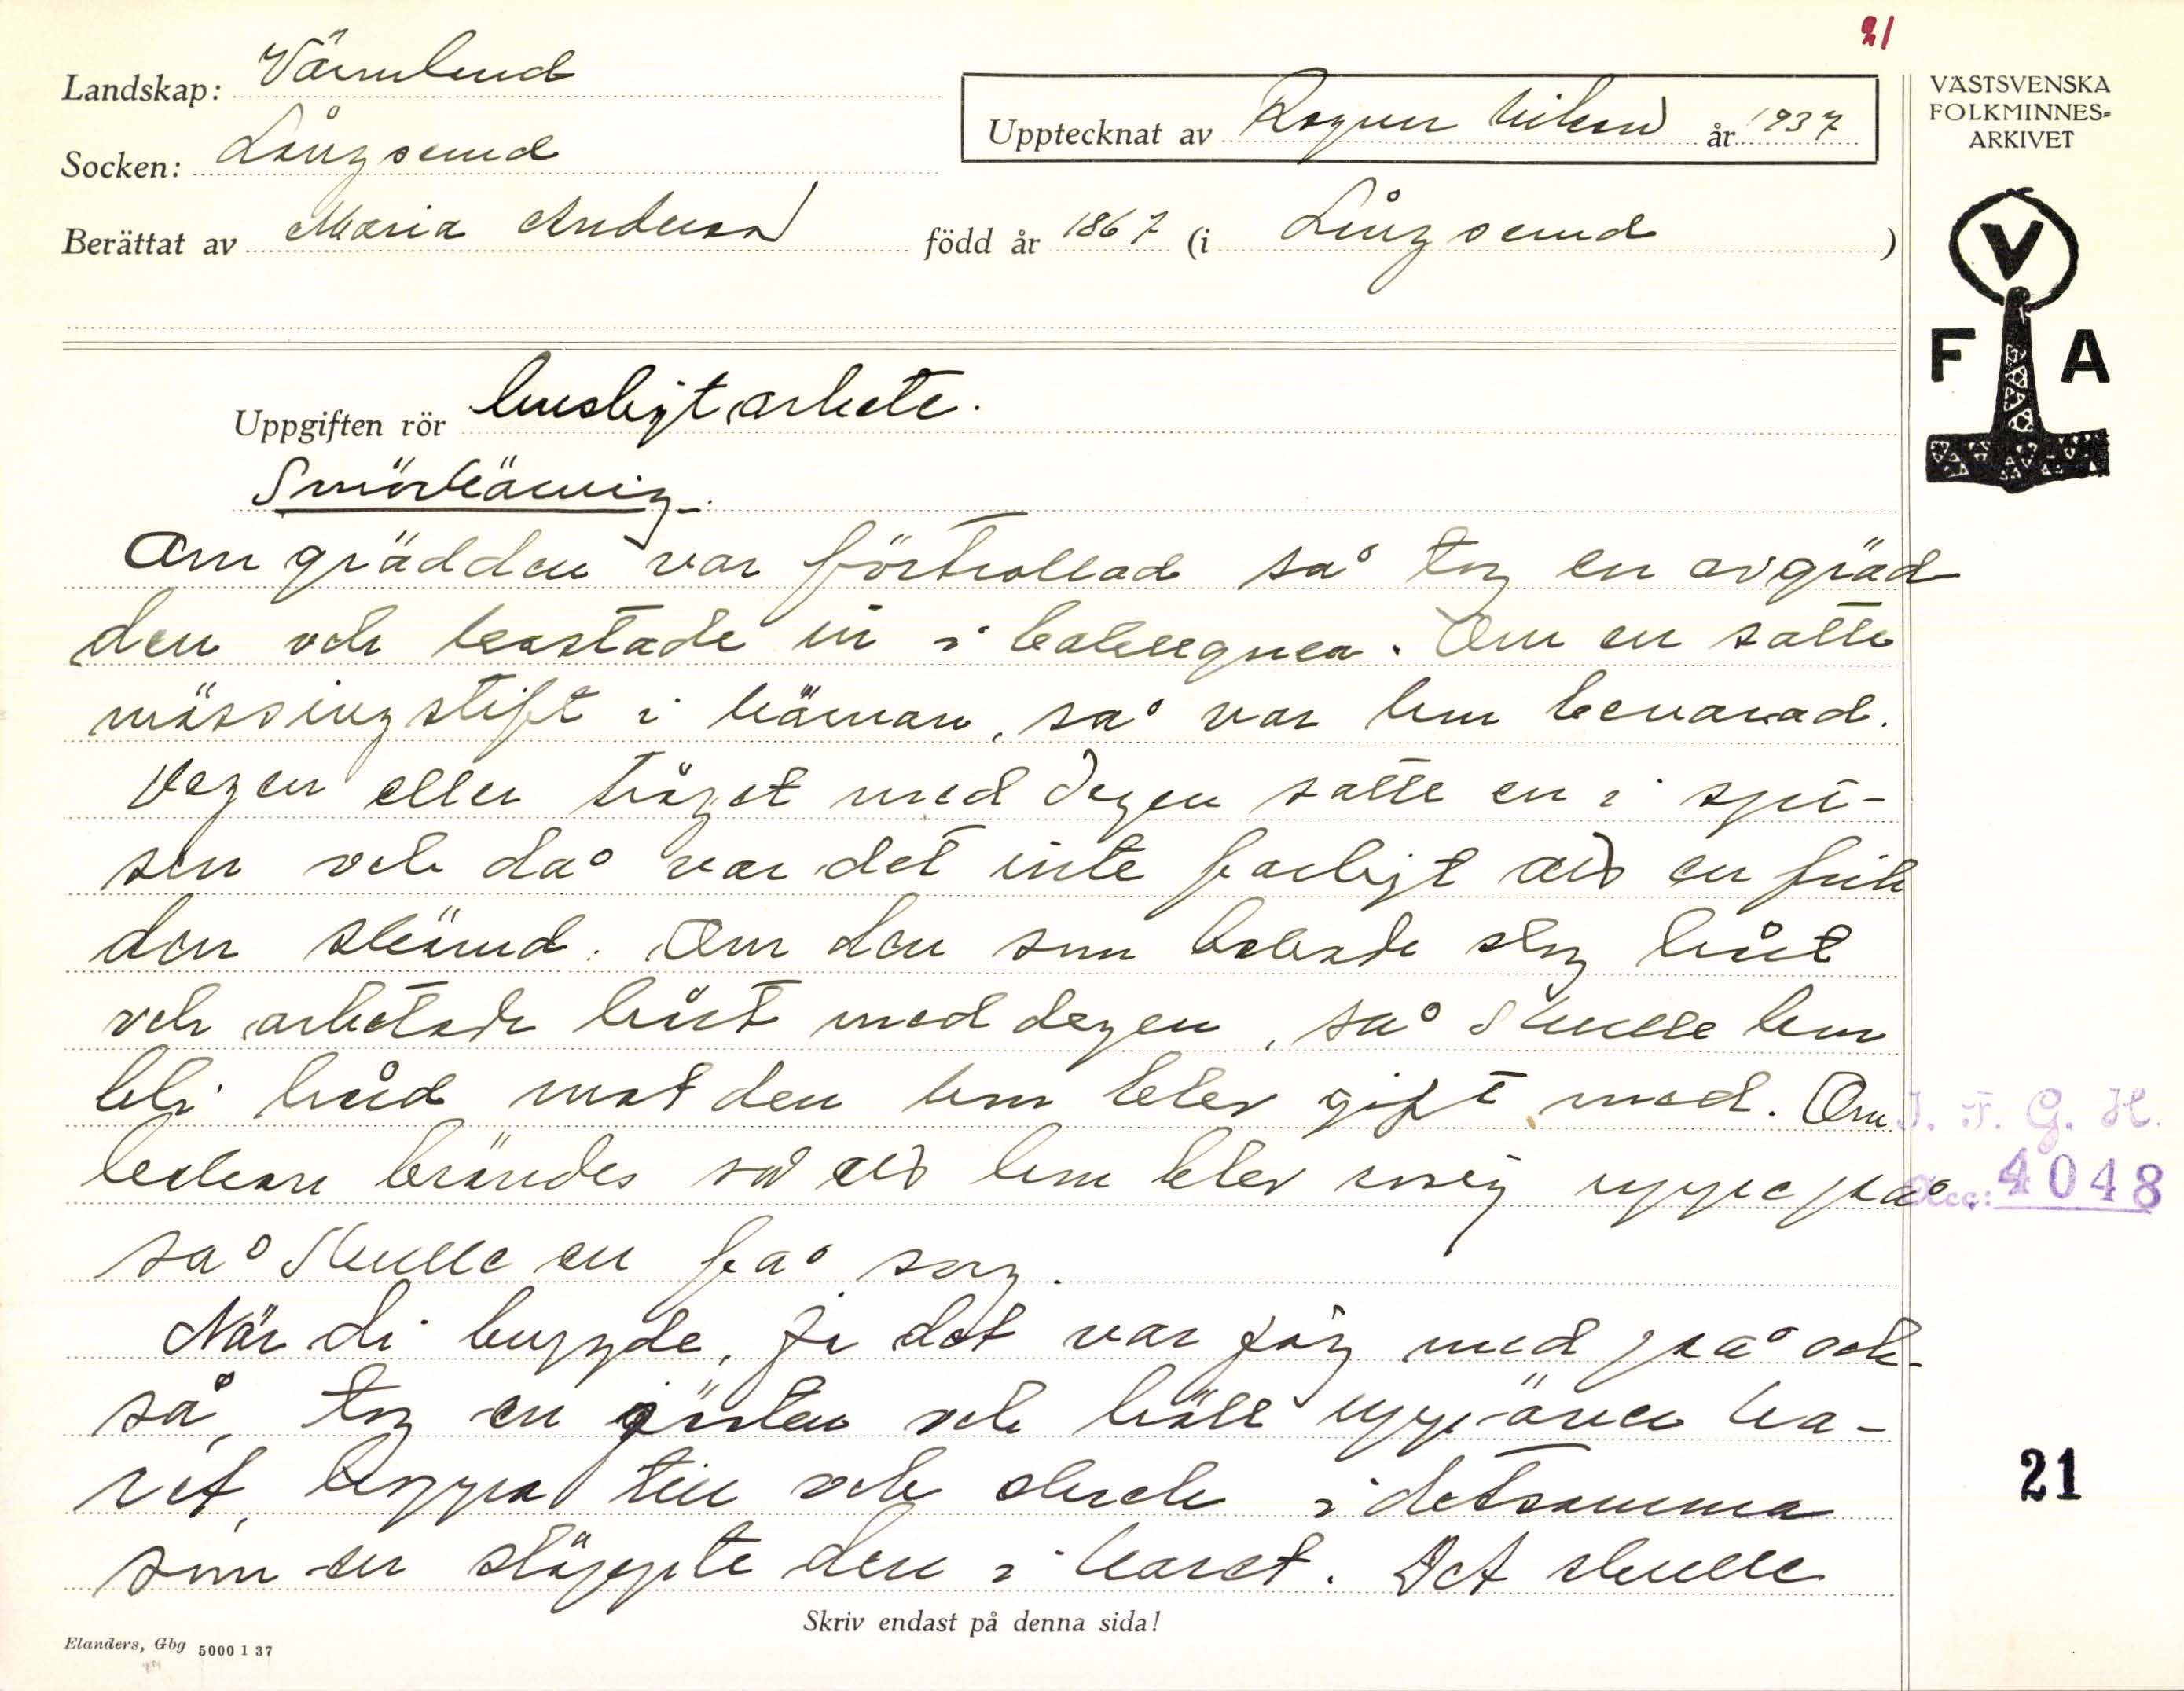 21
Landskap: Värmland
Socken: Långserud
Upptecknat av Ragnar Nilsson år 1937
Berättat av Maria Andersson född år 1867 (i Långserud)
VÄSTSVENSKA
FOLKMINNES-
ARKIVET
V
F A
Uppgiften rör husligt arbete.
Smörkärning.
Om grädden var förtrollad så tog en av gräd
den och kastade in i bakugnen. Om en satte
mässingstift i kärnan, så var hon bevarad.
Degen eller tråget med degen satte en i spi-
sen och då var det inte farligt att en fick
den skämd. Om den som bakade slog hårt
och arbetade hårt med degen, så skulle hon
bli hård mot den hon blev gift med. Om
kakan brändes så att hon blev svart uppepå
så skulle en få sorg.
När di bryggde, ja det var jäg med på ock-
så, tog en jästen och höll uppöver ka-
ret, hoppad till och skrek i detsamma
som en släppte den i karet. Det skulle
J. F. G. H.
Acc: 4048
21
Skriv endast på denna sida!
Elanders, Gbg 5000 1 37